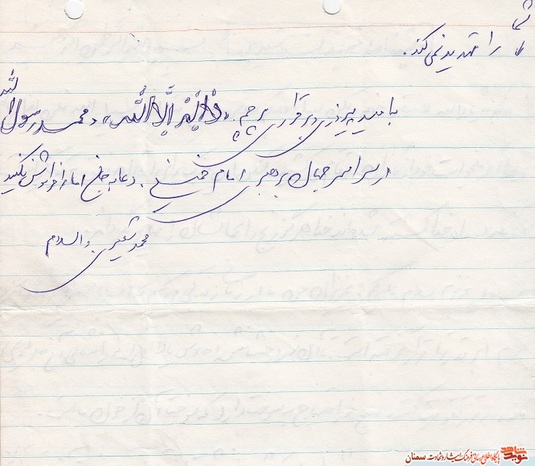 شما را تهدید نمی کند.
با امید پیروزی و برقراری پرچم «لااله الاالله» و محمد رسول الله
در سراسر جهان برهبری امام خمینی. دعا به جان امام را فراموش نکنید
والسلام
محمد شعیری
نوید شاهد
پایگاه اطلاع رسانی فرهنگ ایثار و شهادت سمنان